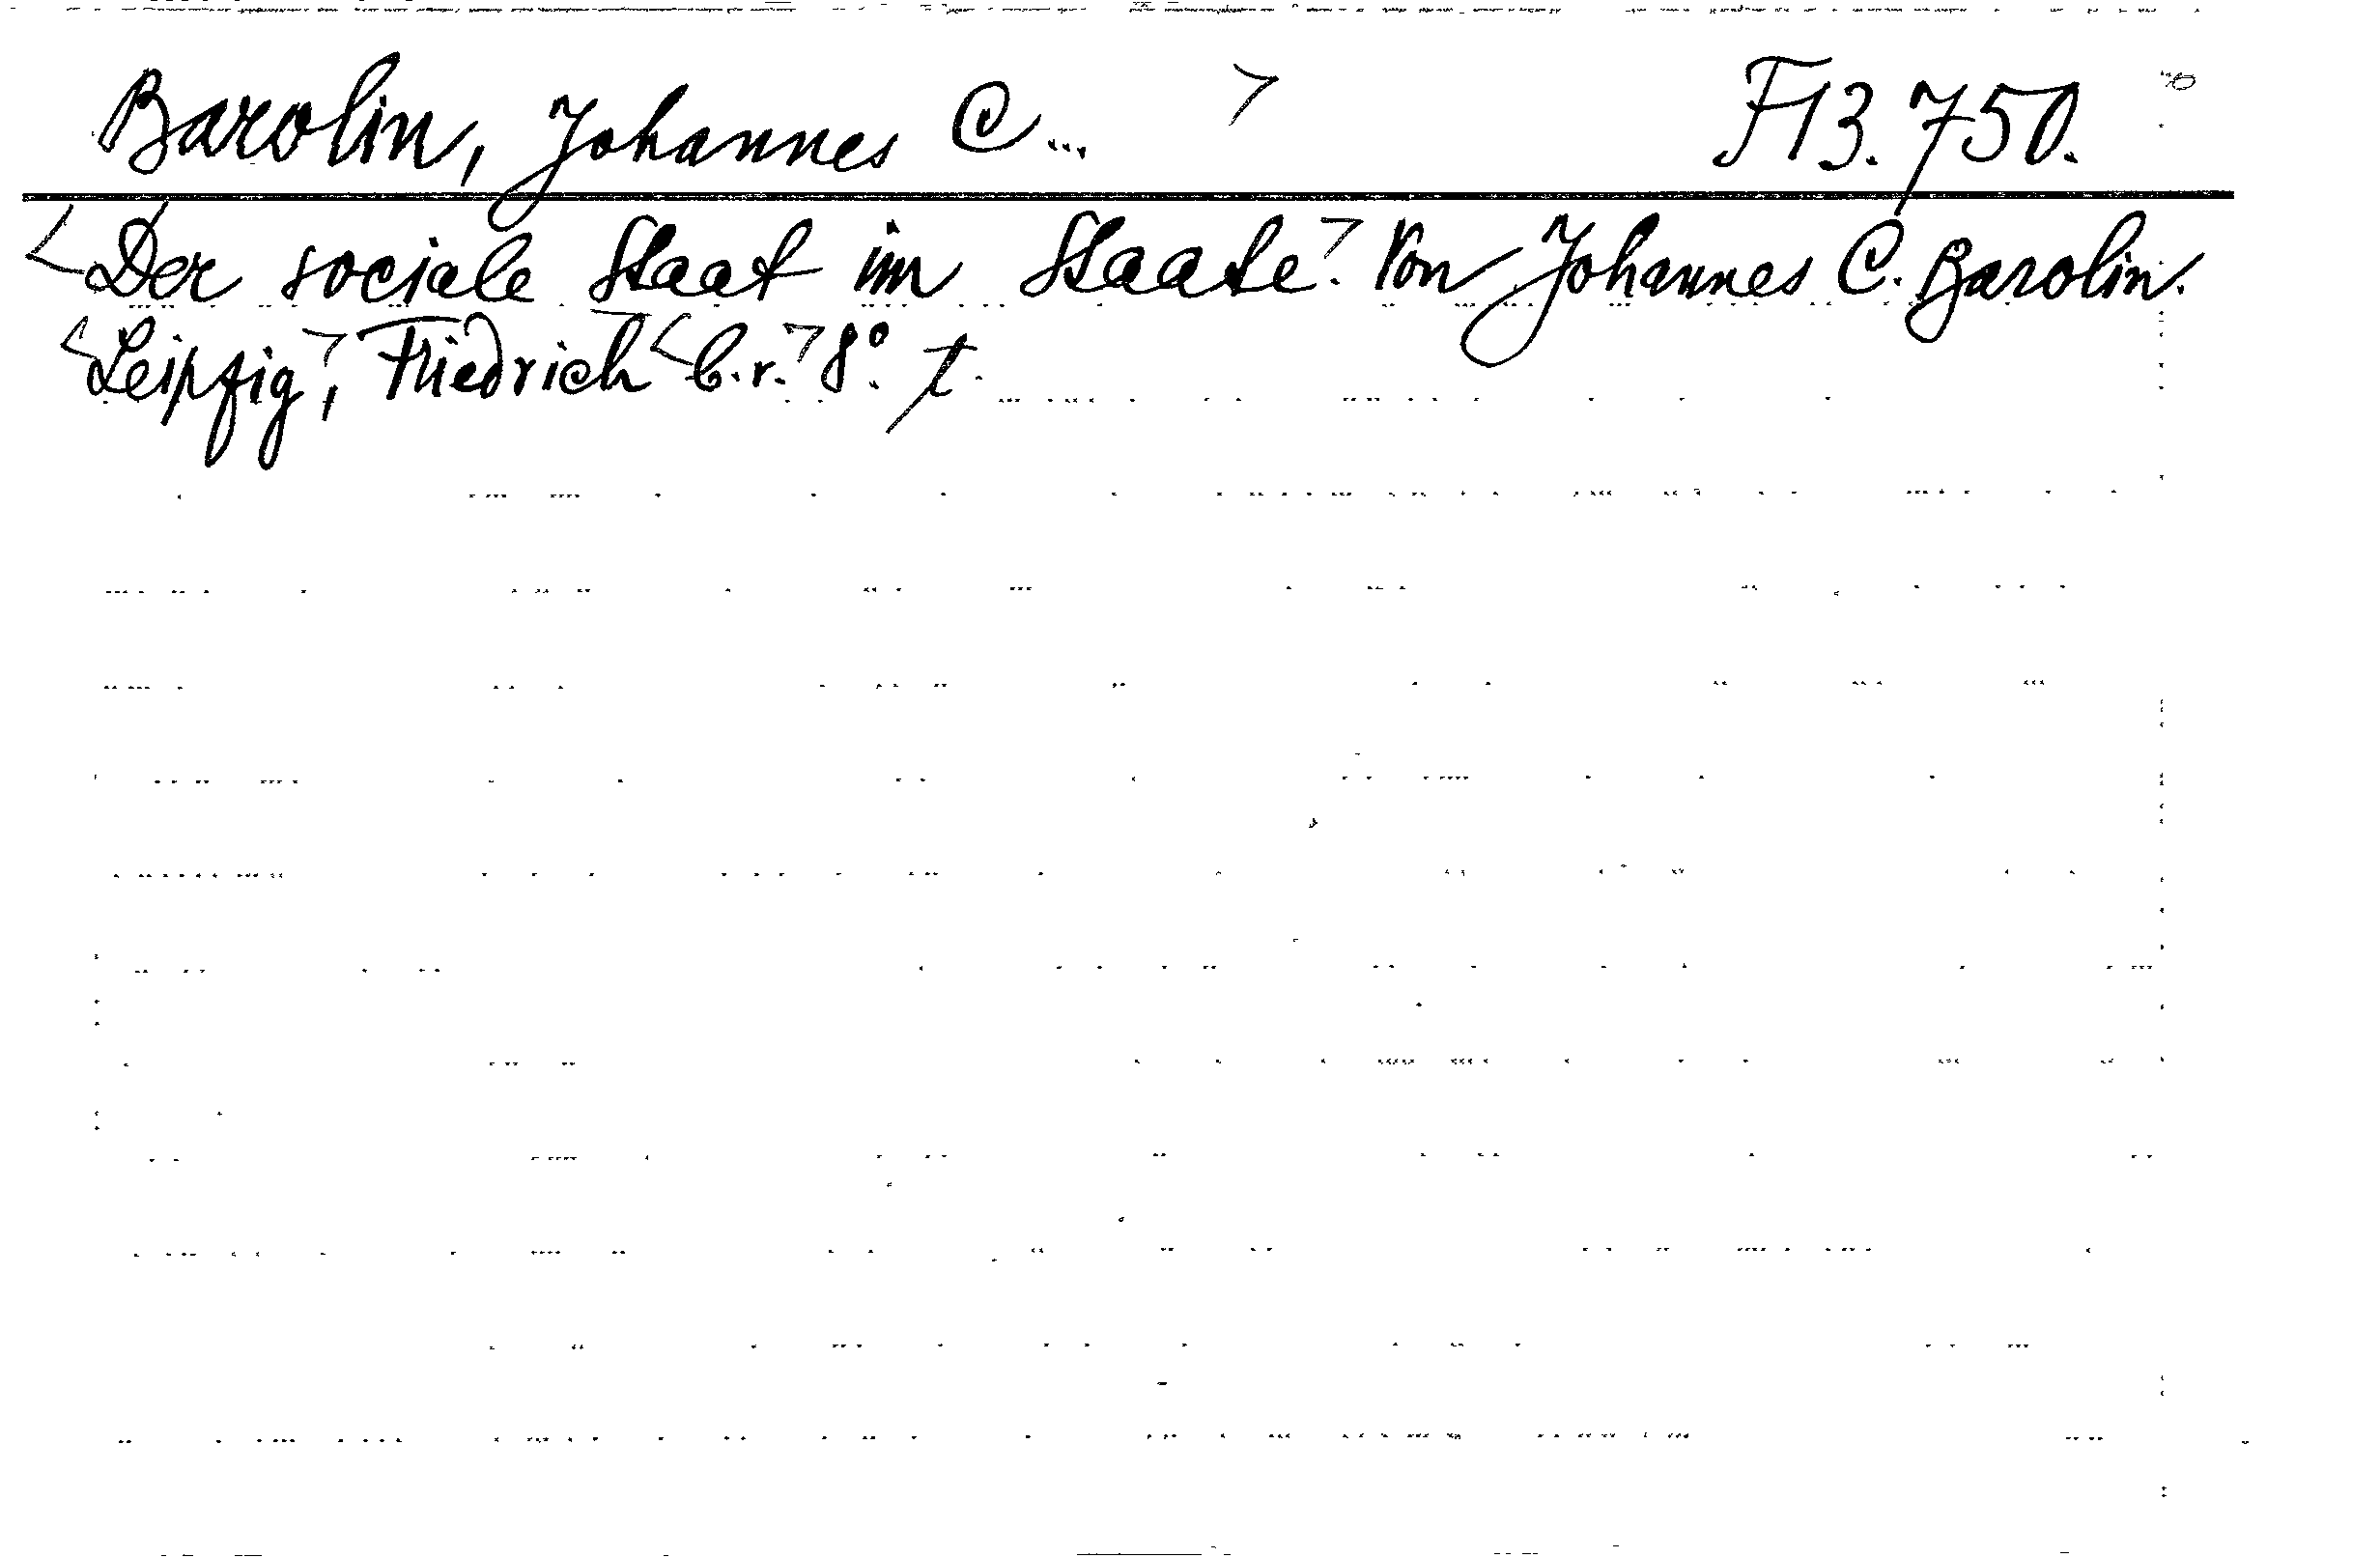 Barolin, Johannes C... > F13.750.
<Der sociale Staat im Staate.> Von Johannes C. Barolin.
<Leipzig>, Friedrich <b.r.> 8° t.